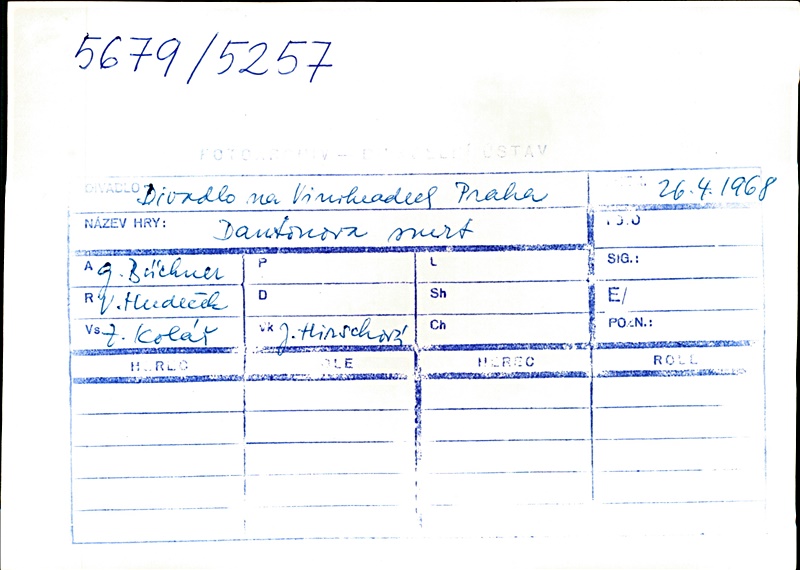 5679/5257
FOTOARCHIV – DIVADELNÍ ÚSTAV
DIVADLO: Divadlo na Vinohradech Praha 26.4.1968
NÁZEV HRY: Dantonova smrt
A G. Büchner P L SIG.:
R V. Hudeček D Sh E/
Vs Z. Kolář Vk J. Hirschová Ch POZN.:
HEREC ROLE HEREC ROLE